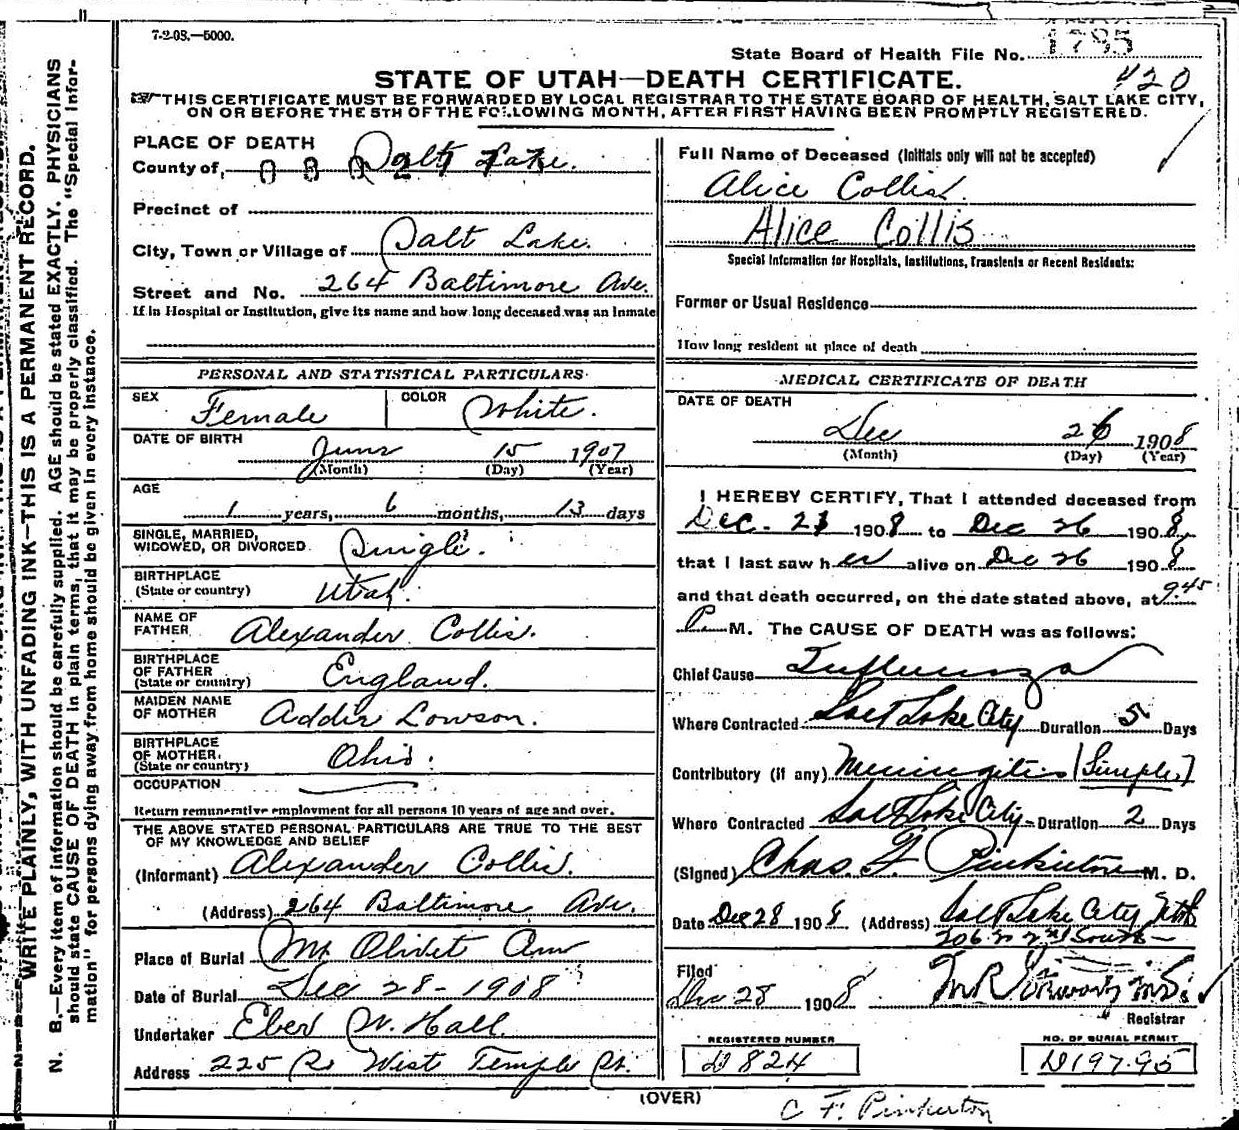 7-2-08.—5000.
State Board of Health File No. 1785
STATE OF UTAH—DEATH CERTIFICATE.
420
THIS CERTIFICATE MUST BE FORWARDED BY LOCAL REGISTRAR TO THE STATE BOARD OF HEALTH, SALT LAKE CITY,
ON OR BEFORE THE 5TH OF THE FOLLOWING MONTH, AFTER FIRST HAVING BEEN PROMPTLY REGISTERED.
WRITE PLAINLY, WITH UNFADING INK—THIS IS A PERMANENT RECORD.
N. B.—Every item of information should be carefully supplied. AGE should be stated EXACTLY. PHYSICIANS
should state CAUSE OF DEATH in plain terms, that it may be properly classified. The "Special Infor-
mation" for persons dying away from home should be given in every instance.
PLACE OF DEATH
County of, Salt Lake.
Precinct of
City, Town or Village of Salt Lake.
Street and No. 264 Baltimore Ave.
If in Hospital or Institution, give its name and how long deceased was an inmate
PERSONAL AND STATISTICAL PARTICULARS
SEX Female COLOR White.
DATE OF BIRTH June 15 1907
(Month) (Day) (Year)
AGE
1 years, 6 months, 13 days
SINGLE, MARRIED,
WIDOWED, OR DIVORCED Single.
BIRTHPLACE
(State or country) Utah.
NAME OF
FATHER Alexander Collis.
BIRTHPLACE
OF FATHER
(State or country) England.
MAIDEN NAME
OF MOTHER Addie Lowson.
BIRTHPLACE
OF MOTHER.
(State or country) Ohio.
OCCUPATION
Return remunerative employment for all persons 10 years of age and over.
THE ABOVE STATED PERSONAL PARTICULARS ARE TRUE TO THE BEST
OF MY KNOWLEDGE AND BELIEF
(Informant) Alexander Collis.
(Address) 264 Baltimore Ave.
Place of Burial Mt Olivet
Date of Burial Dec 28-1908
Undertaker Eber W. Hall
Address 225 So West Temple St.
Full Name of Deceased (Initials only will not be accepted)
Alice Collis.
Alice Collis
Special Information for Hospitals, Institutions, Transients or Recent Residents:
Former or Usual Residence
How long resident at place of death
MEDICAL CERTIFICATE OF DEATH
DATE OF DEATH
Dec 26 1908
(Month) (Day) (Year)
I HEREBY CERTIFY, That I attended deceased from
Dec. 21 1908 to Dec 26 1908,
that I last saw her alive on Dec 26 1908
and that death occurred, on the date stated above, at 9.45
P. M. The CAUSE OF DEATH was as follows:
Chief Cause Influenza
Where Contracted Salt Lake City Duration 5 Days
Contributory (if any) Meningitis [Simple]
Where Contracted Salt Lake City- Duration 2 Days
(Signed) Chas. F. Pinkerton M. D.
Date Dec 28 1908 (Address) Salt Lake City Utah
South
Filed
Dec 28 1908
Registrar
REGISTERED NUMBER
D 824
NO. OF BURIAL PERMIT
D197.95
(OVER)
C F. Pinkerton